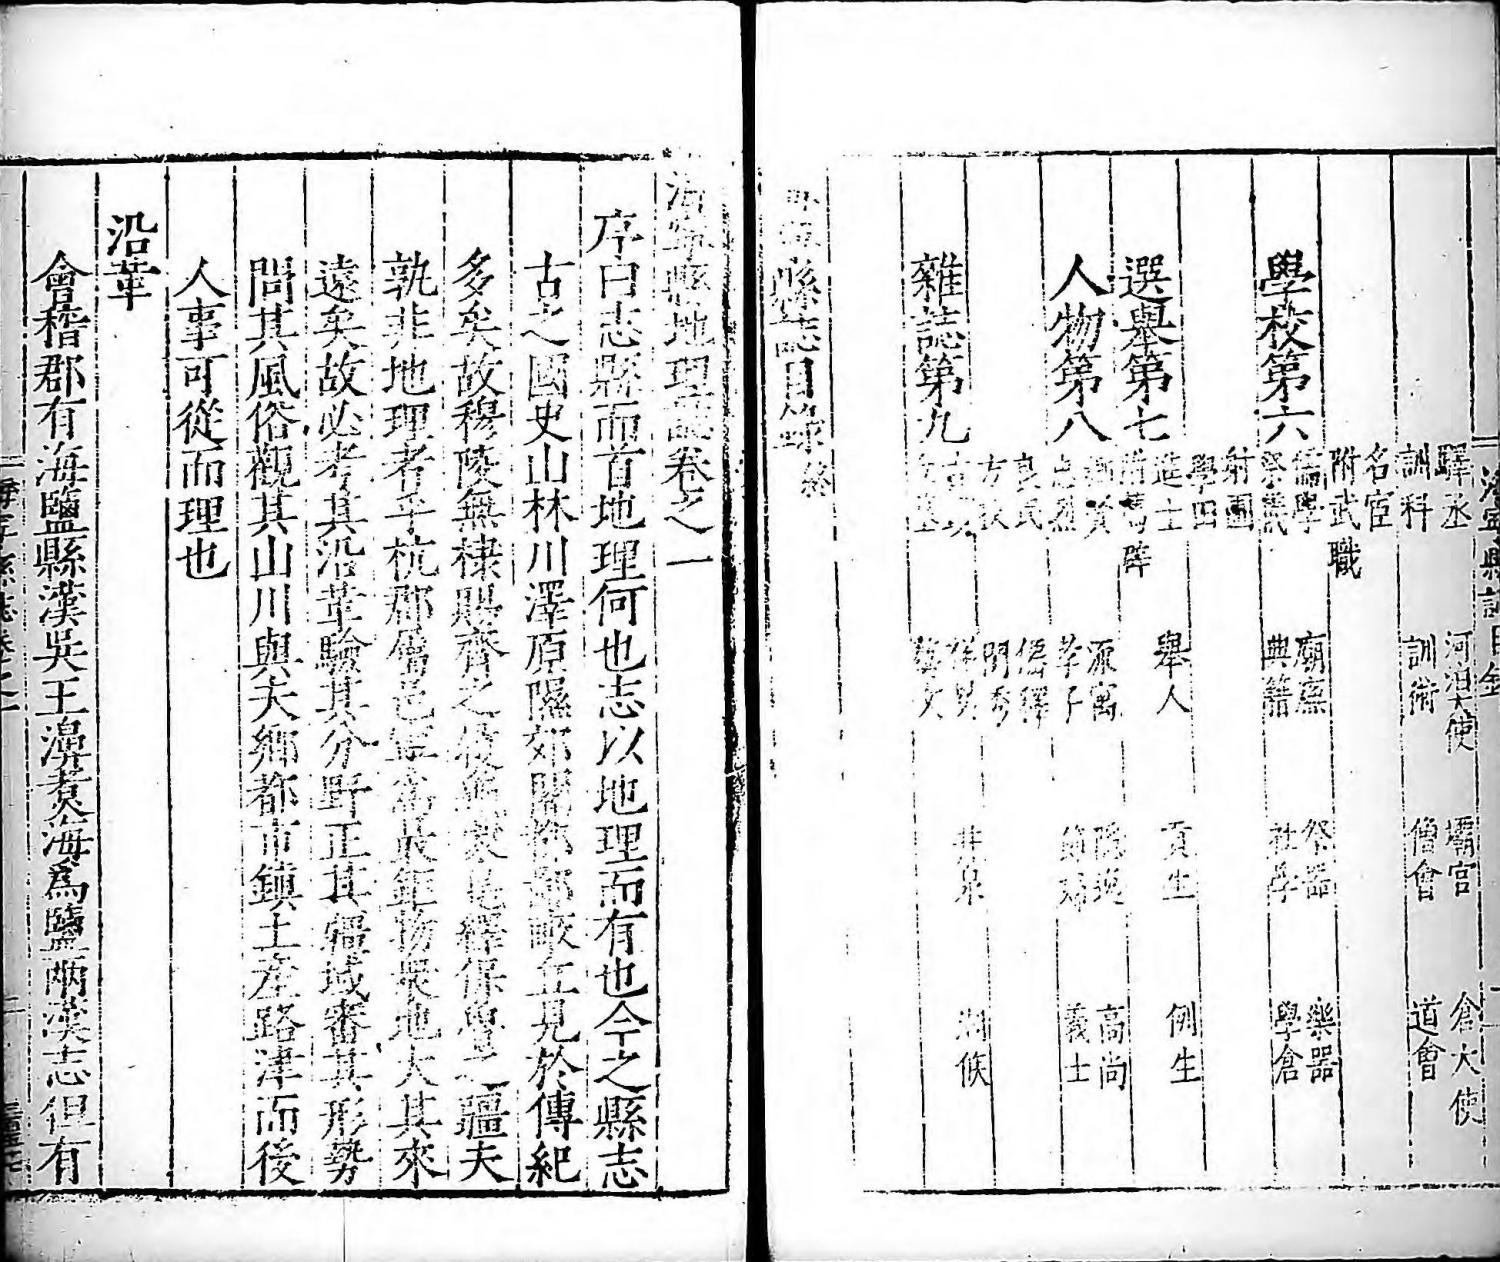 海寧縣誌目錄
驛丞 河泊大使 壩官 倉大使
訓科 訓術 僧會 道會
名宦
附武職
學校第六
儒學 廟廡 祭器 樂器
祭義 典籍 社學 學倉
射圃
學田
選舉第七
進士 舉人 貢生 例生
人物第八
鄉賢 流寓 隱逸 高尚
忠烈 孝子 節婦 義士
良民 僊釋
方伎 閨秀
雜誌第九
祥異 井泉
藝文
縣誌目錄終
海寧縣地理誌卷之一
序曰志縣而首地理何也志以地理而有也今之縣志
古之國史山林川澤原隰郊關都鄙畝丘見於傳紀
多矣故穆陵無棣賜齊之保魯之疆夫
孰非地理者乎杭郡屬邑寧為最鉅物眾地大其來
遠矣故必考其沿革驗其分野正其疆域審其形勢
問其風俗觀其山川與夫鄉都市鎮土產路津而後
人事可從而理也
沿革
會稽郡有海鹽縣漢吳王濞煮海為鹽兩漢志但有
海寧縣誌卷之一